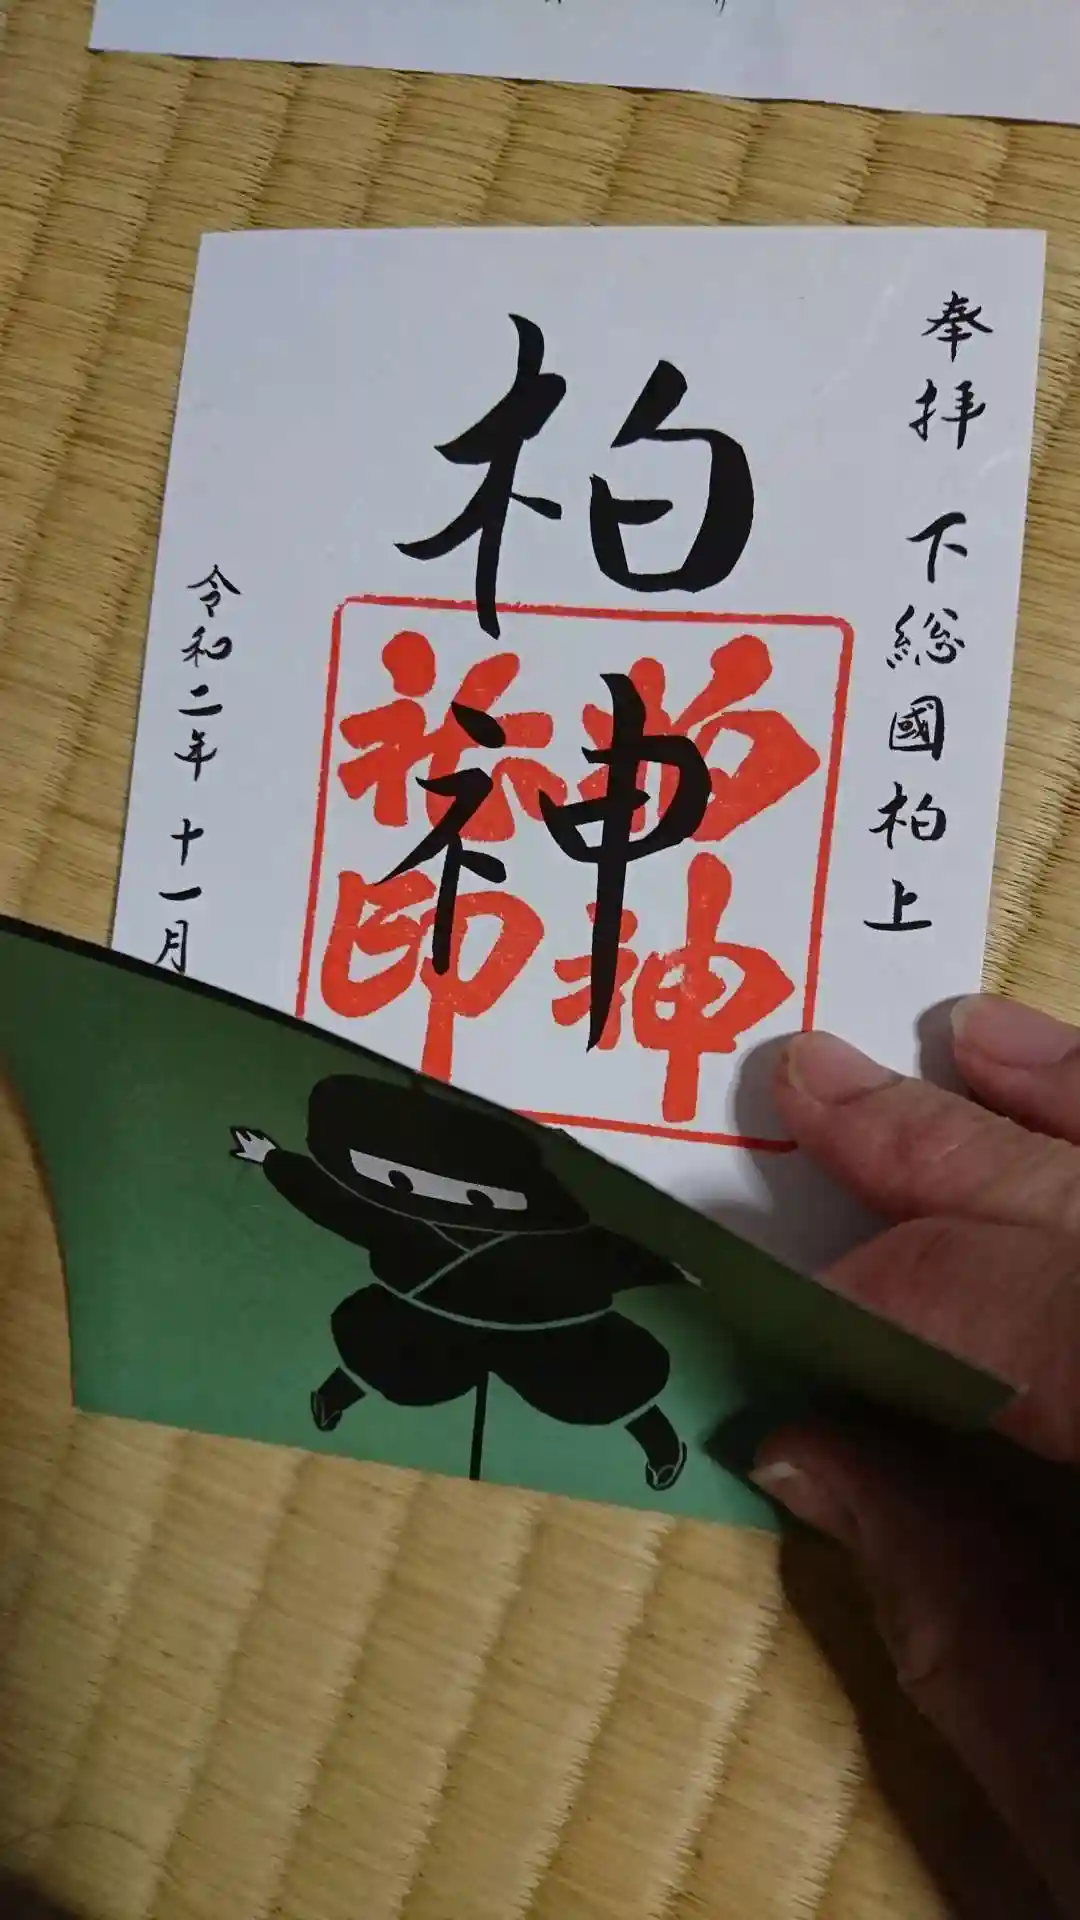 奉拝 下総國柏上
柏神
柏神社印
令和二年十一月